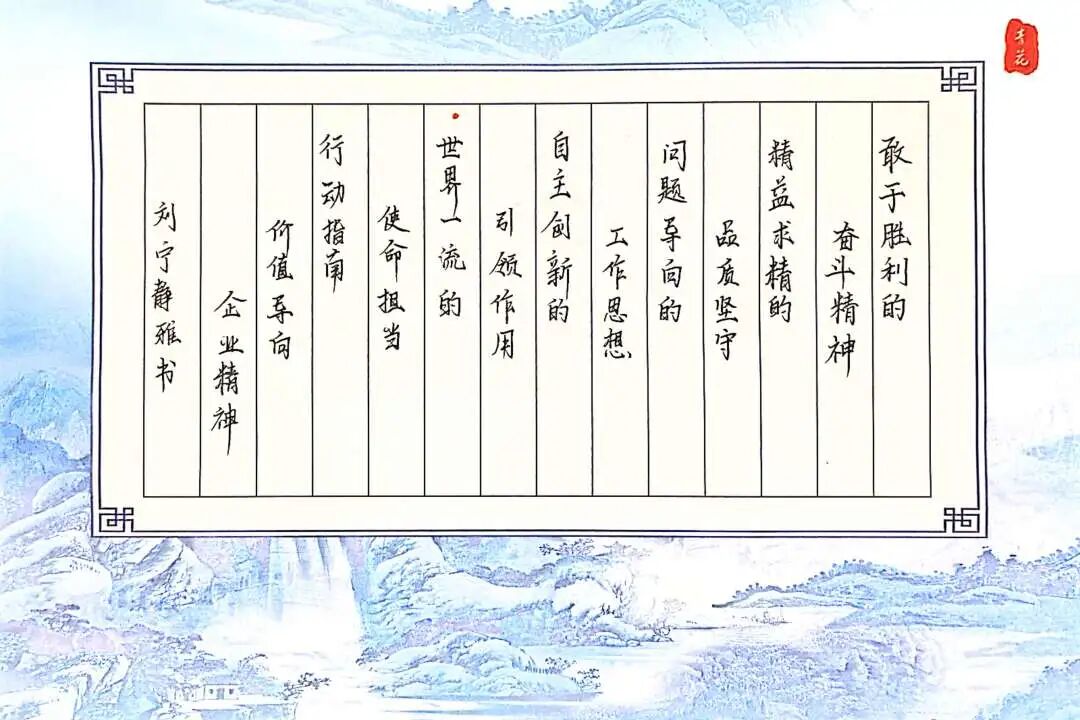 敢于胜利的
奋斗精神
精益求精的
品质坚守
问题导向的
工作思想
自主创新的
引领作用
世界一流的
使命担当
行动指南
价值导向
企业精神
刘宁静雅书
青花